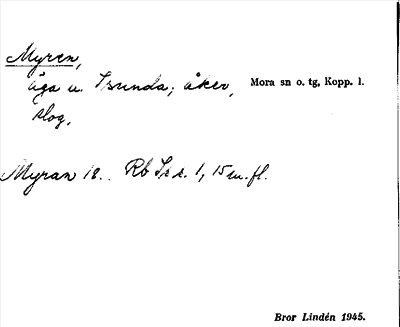 Myren,
äga u. Isunda; åker, Mora sn o. tg, Kopp. l.
slog.
Myran 18.. Rb Is s. 1, 15 m.fl.
Bror Lindén 1945.